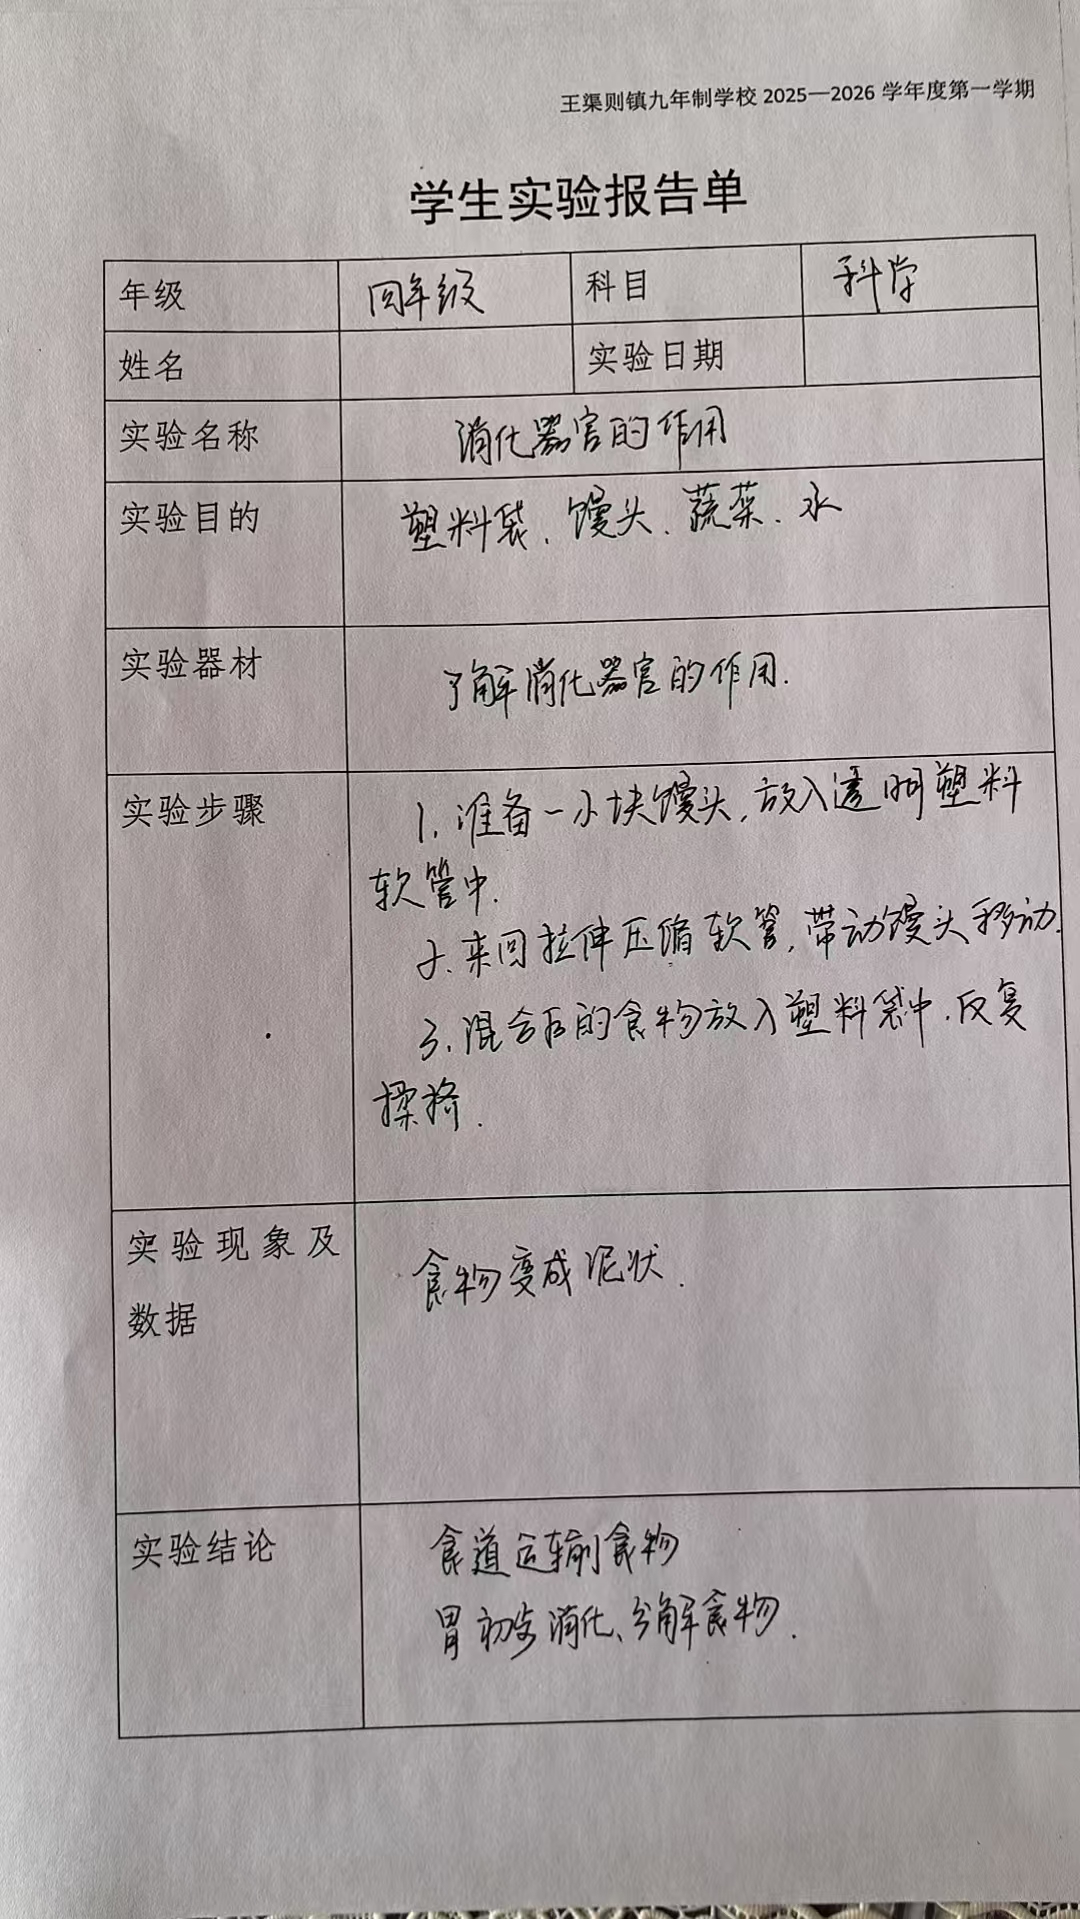 王渠则镇九年制学校 2025—2026 学年度第一学期
学生实验报告单
年级 四年级 科目 科学
姓名 实验日期
实验名称 消化器官的作用
实验目的 塑料袋、馒头、蔬菜、水
实验器材 了解消化器官的作用.
实验步骤 1. 准备一小块馒头,放入透明塑料
软管中.
2. 来回拉伸压缩软管,带动馒头移动.
3. 混合后的食物放入塑料袋中.反复
揉挤.
实验现象及 食物变成泥状.
数据
实验结论 食道运输食物
胃初步消化、分解食物.